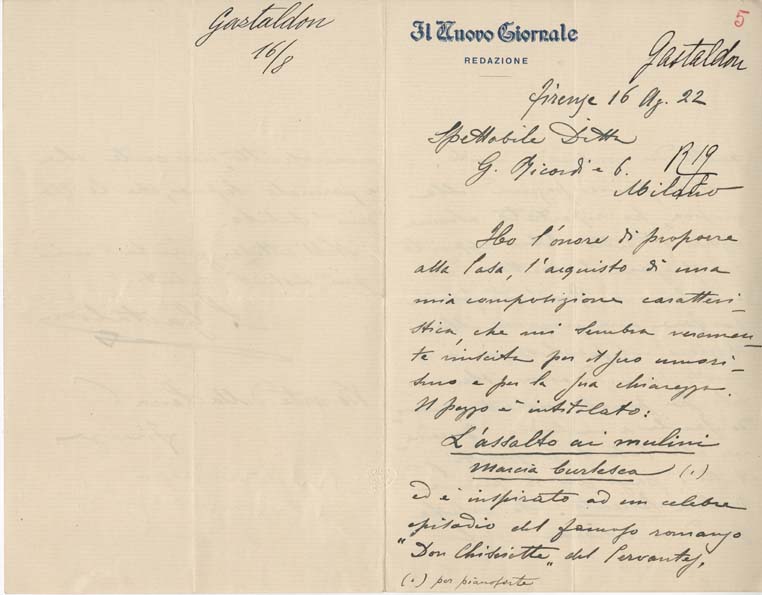 Gastaldon
16/8
5
Il Nuovo Giornale
REDAZIONE
Gastaldon
Firenze 16 Ag. 22
Spettabile Ditta
G. Ricordi e C.
R 19
Milano
Ho l'onore di proporre
alla Casa, l'acquisto di una
mia composizione caratteri-
stica, che mi sembra veramen-
te riuscita per il suo umori-
smo e per la sua chiarezza.
Il pezzo è intitolato:
L'assalto ai mulini
Marcia burlesca (.)
ed è inspirato ad un celebre
episodio del famoso romanzo
"Don Chisciotte" del Cervantes,
(.) per pianoforte